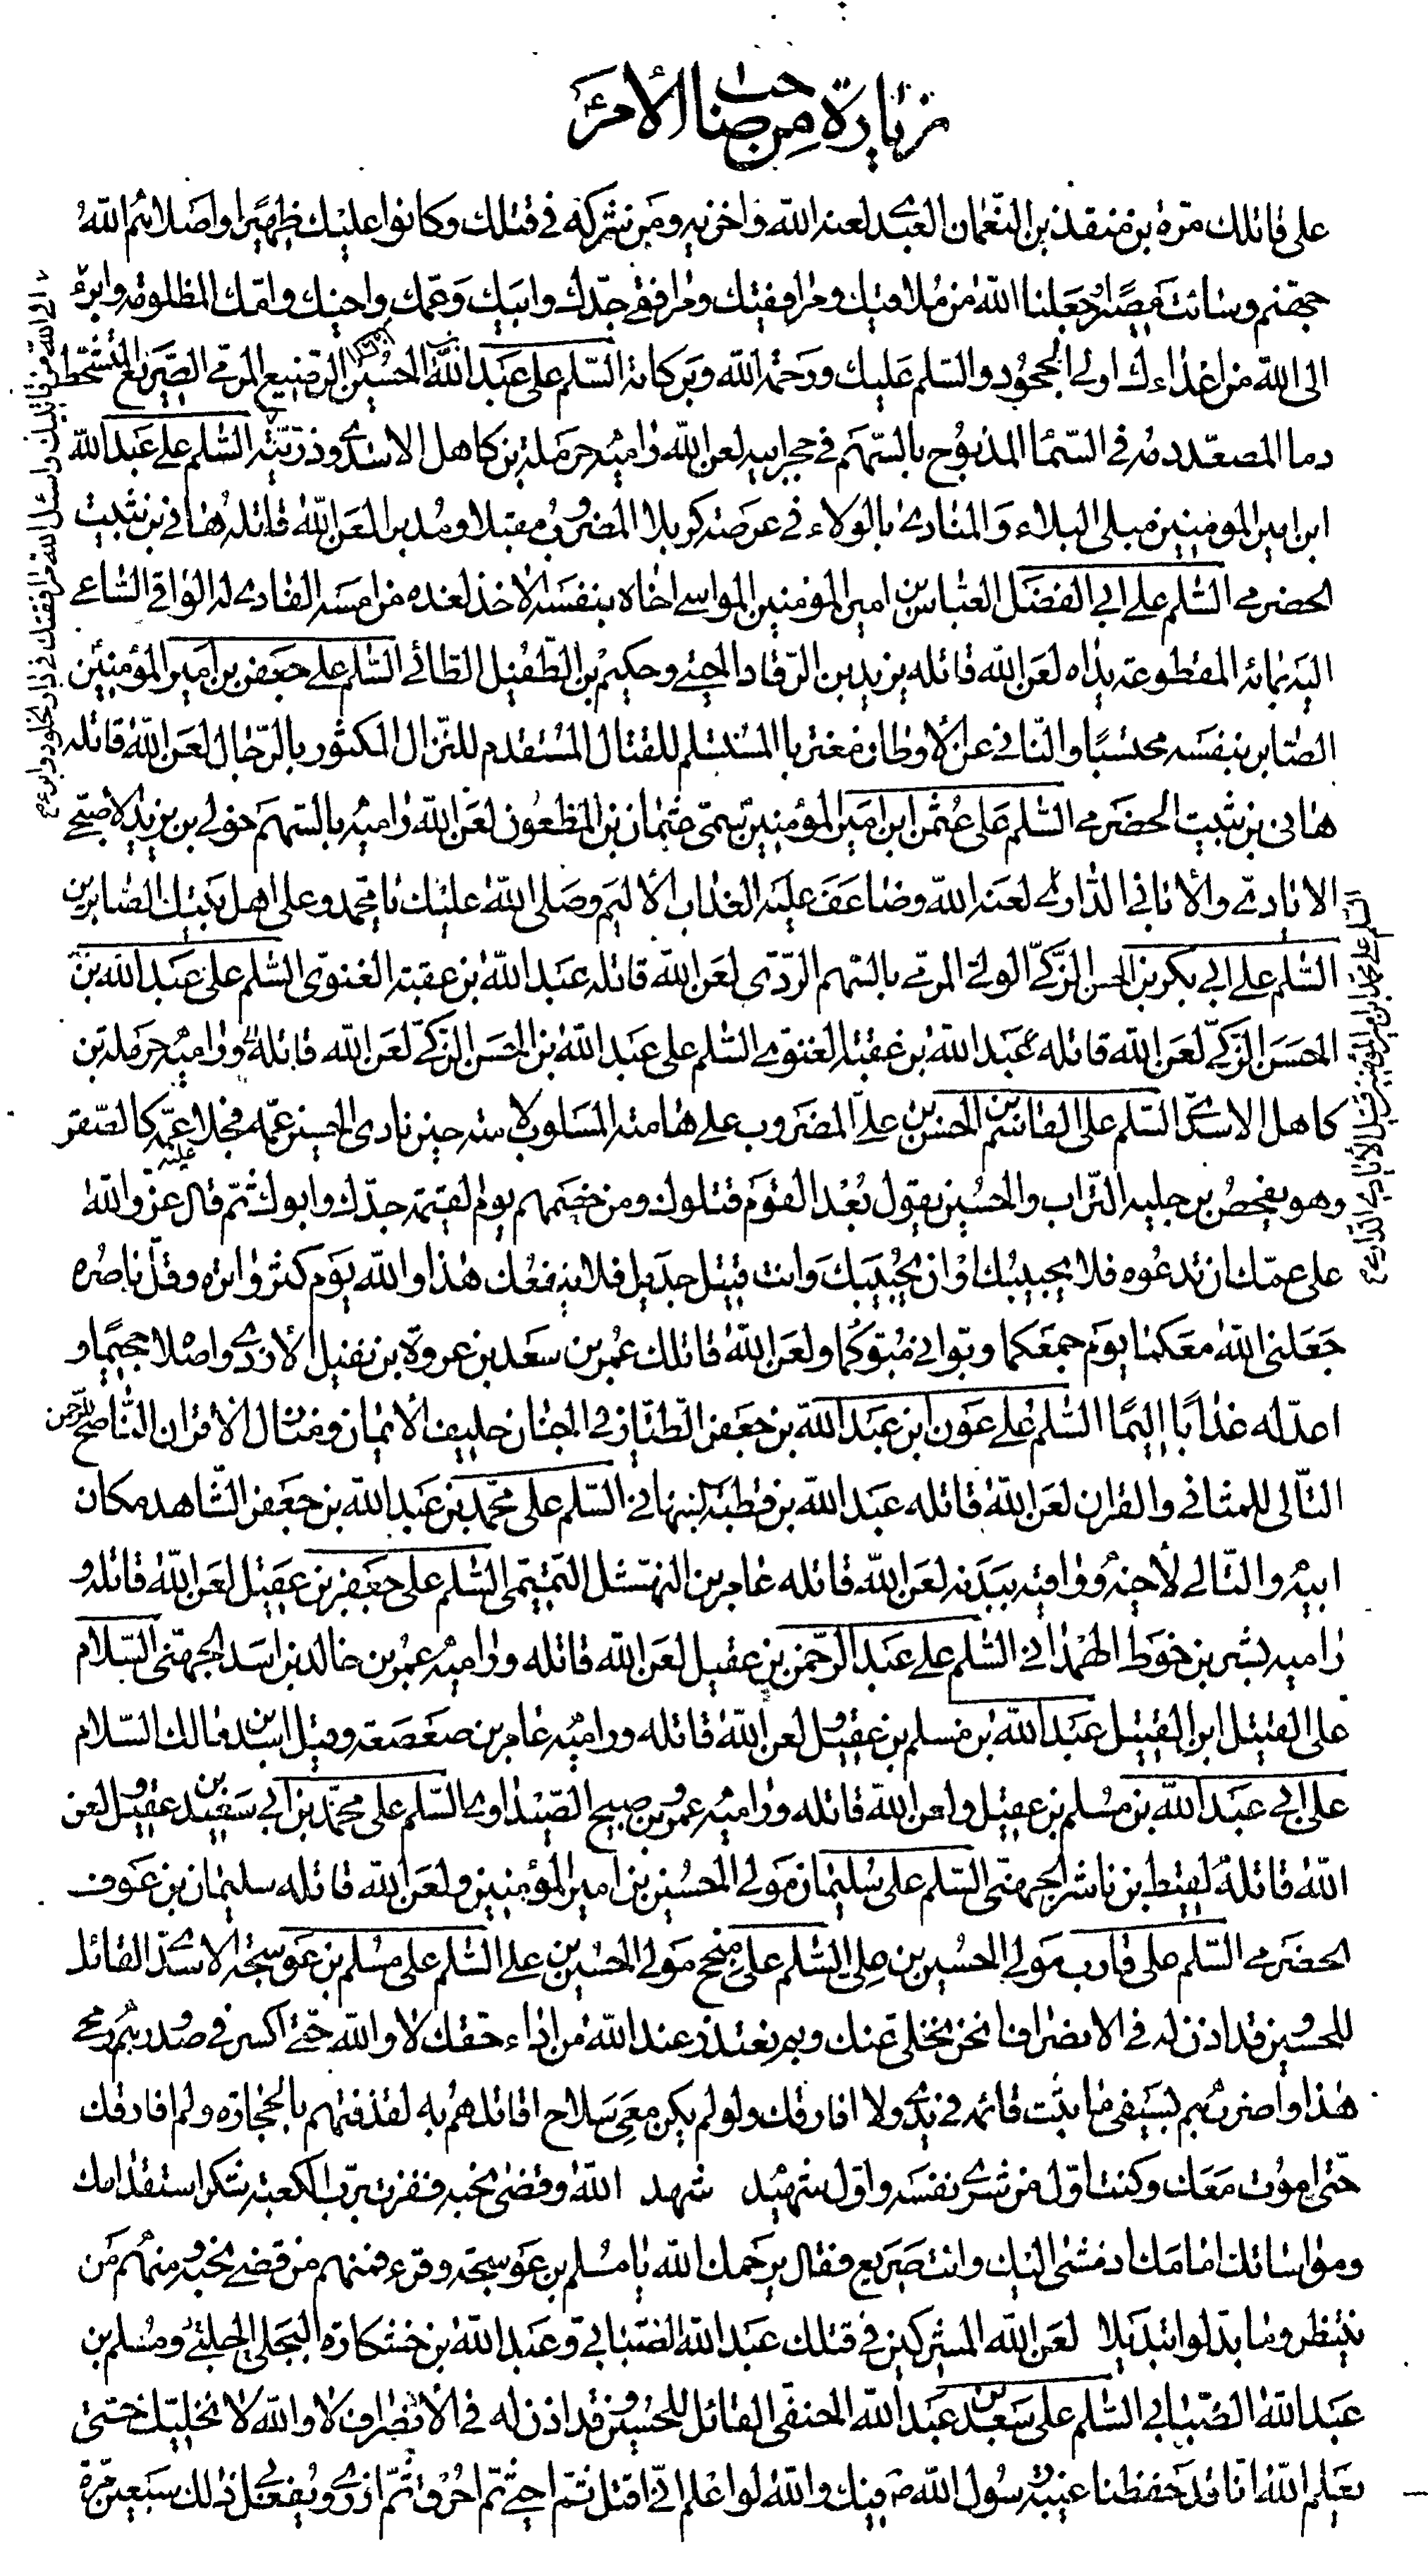 زيارة من صاحب الأمر ع
على قاتلك مرة بن منقذ بن النعمان العبدى لعنه الله واخزيه ومن شركه في قتلك وكانوا عليك ظهيرا واصلاهم الله
جهنم وسائت مصيرا وجعلنا الله من ملاقيك ومرافقيك ومرافقى جدك وابيك وعمك واخيك وامك المظلومة وابرء
الى الله من اعداءك اولى الجحود والسلم عليك ورحمة الله وبركاته السلم على عبد الله بن الحسين الرضيع المرمى الصريع المتشحط
دما المصعد دمه في السماء المذبوح بالسهم في حجر ابيه لعن الله راميه حرملة بن كاهل الاسدى وذريته السلم على عبد الله
ابن امير المومنين مبلى البلاء والمنادى بالولاء في عرصة كربلا المضروب مقبلا ومدبرا لعن الله قاتله هانى بن ثبيت
الحضرمى السلم على ابى الفضل العباس بن امير المؤمنين المواسى اخاه بنفسه الاخذ لغده من امسه الفادى له الواقى الساعى
اليه بمائه المقطوعة يداه لعن الله قاتله يزيد بن الرقاد الجتى وحكيم بن الطفيل الطائى السلم على جعفر بن امير المؤمنين
الصابر بنفسه محتسبا والنائى عن الأوطان مغتربا المستسلم للقتال المستقدم للنزال المكثور بالرجال لعن الله قاتله
هانى بن ثبيت الحضرمى السلم على عثمن ابن امير المؤمنين سمى عثمان بن المظعون لعن الله راميه بالسهم خولى بن يزيد الأصبحى
الايادى والأبانى الدارى لعنه الله وضاعف عليه العذاب الأليم وصلى الله عليك يا محمد وعلى اهل بيتك الصابرين
السلم على ابى بكر بن الحسن الزكى الولى المرمى بالسهم الردى لعن الله قاتله عبد الله بن عقبة الغنوى السلم على عبد الله بن
الحسن الزكى لعن الله قاتله عبد الله بن عقبة الغنوى السلم على عبد الله بن الحسن الزكى لعن الله قاتله وراميه حرملة بن
كاهل الاسدى السلم على القاسم بن الحسن بن على المضروب على هامته المسلوب لامته حين نادى الحسين عمه فجلا عليه عمه كالصقر
وهو يفحص برجليه التراب والحسين يقول بعدا لقوم قتلوك ومن خصمهم يوم القيمة جدك وابوك ثم قال عز والله
على عمك ان تدعوه فلا يجيبك او ان يجيبك وانت قتيل جديل فلا ينفعك هذا والله يوم كثر واتره وقل ناصره
جعلنى الله معكما يوم جمعكما وبوانى مبوئكما ولعن الله قاتلك عمر بن سعد بن عروة بن نفيل الأزدى واصلاه جحيما و
اعد له عذابا اليما السلم على عون ابن عبد الله بن جعفر الطيار في الجنان حليف الأيمان ومنازل الأقران الناصح للرحمن
التالى للمثانى والقران لعن الله قاتله عبد الله بن قطبة النبهانى السلم على محمد بن عبد الله بن جعفر الشاهد مكان
ابيه والتالى لأخيه وواقيه ببدنه لعن الله قاتله عامر بن النهشل التميمى السلم على جعفر بن عقيل لعن الله قاتله و
راميه بشر بن خوط الهمدانى السلم على عبد الرحمن بن عقيل لعن الله قاتله وراميه عمر بن خالد بن اسد الجهنى السلام
على القتيل ابن القتيل عبد الله بن مسلم بن عقيل ولعن الله قاتله وراميه عامر بن صعصعة وقيل اسد بن مالك السلام
على ابى عبد الله بن مسلم بن عقيل ولعن الله قاتله وراميه عمرو بن صبيح الصيداوى السلم على محمد بن ابى سعيد بن عقيل ولعن
الله قاتله لقيط بن ناشر الجهنى السلم على سليمان مولى الحسين بن امير المؤمنين ولعن الله قاتله سليمان بن عوف
الحضرمى السلم على قارب مولى الحسين بن على السلم على منجح مولى الحسين بن على السلم على مسلم بن عوسجة الاسدى القائل
للحسين وقد اذن له في الانصراف انحن نخلى عنك وبم نعتذر عند الله من اداء حقك لا والله حتى اكسر في صدورهم رمحى
هذا واضربهم بسيفى ما ثبت قائمه في يدى ولا افارقك ولو لم يكن معى سلاح اقاتلهم به لقذفتهم بالحجارة ولم افارقك
حتى اموت معك وكنت اول من شرى نفسه واول شهيد شهد الله وقضى نحبه ففزت برب الكعبة شكر استقدامك
ومواساتك امامك اذ مشى اليك وانت صريع فقال يرحمك الله يا مسلم بن عوسجة وقرء فمنهم من قضى نحبه ومنهم من
ينتظر وما بدلوا تبديلا لعن الله المشتركين في قتلك عبد الله الضبابى وعبد الله بن خشكارة البجلى ومسلم بن
عبد الله الضبابى السلم على سعد بن عبد الله الحنفى القائل للحسين وقد اذن له في الأنصراف لا والله لا نخليك حتى
يعلم الله انا قد حفظنا غيبة رسول الله ص فيك والله لو اعلم انى اقتل ثم احيى ثم احرق ثم اذرى ويفعل بى ذلك سبعين مرة
الى الله من قاتليك واسئل الله مرافقتك في دار الخلود وابرء
السلم على محمد ابن امير المؤمنين قتيل الأيادى الدارى